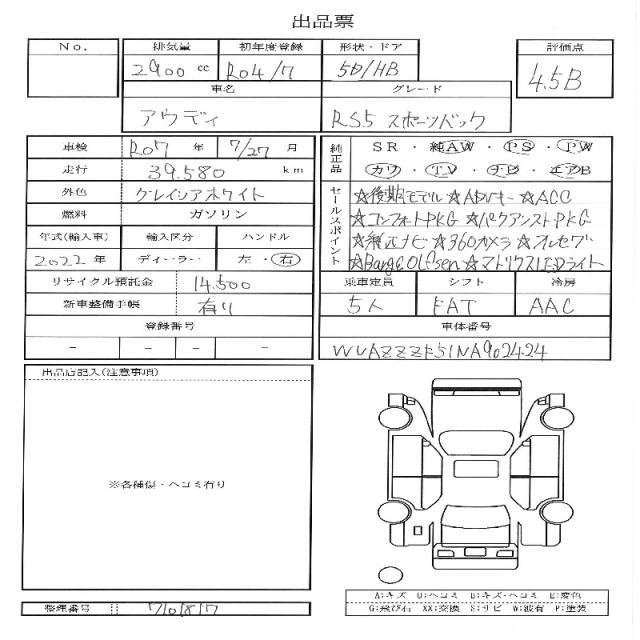 出品票
No. 排気量 初年度登録 形状・ドア 評価点
2900 cc R04/7 5D/HB 4.5B
車名 グレード
アウディ RS5 スポーツバック
車検 R07 年 7/27 月
走行 39.580 km
外色 グレイシアホワイト
燃料 ガソリン
年式(輸入車) 輸入区分 ハンドル
2022 年 ディーラー 左・右
リサイクル預託金 14.500
新車整備手帳 有り
登録番号
- - - -
純正品 SR・純AW・PS・PW
カワ・TV・ナビ・エアB
セールスポイント
☆後期モデル☆ADVキー☆ACC
☆コンフォートPKG☆パークアシストPKG
☆純正ナビ☆360カメラ☆フルセグ
☆Bang&Olufsen☆マトリクスLEDライト
乗車定員 シフト 冷房
5人 FAT AAC
車体番号
WUAZZZF51NA902424
出品店記入(注意事項)
※各種傷・ヘコミ有り
A:キズ U:ヘコミ B:キズ・ヘコミ E:変色
G:飛び石 XX:交換 S:サビ W:波有 P:塗装
整理番号 710817